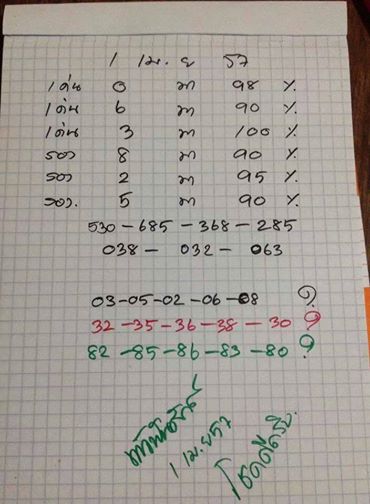 1 เม.ย 57
เด่น 0 มา 98 %
เด่น 6 มา 90 %
เด่น 3 มา 100 %
รอง 8 มา 90 %
รอง 2 มา 95 %
รอง. 5 มา 90 %
530-685-368-285
038- 032-063
03-05-02-06-08 ?
32-35-36-38-30 ?
82-85-86-83-80 ?
1 เม.ย 57
โชคดีครับ